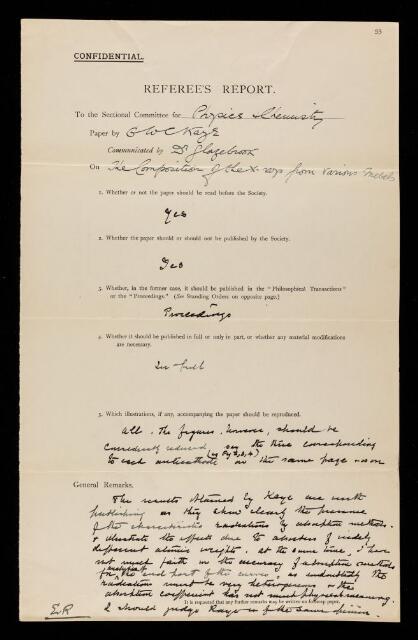 93
CONFIDENTIAL.
REFEREE'S REPORT.
To the Sectional Committee for Physics & Chemistry
Paper by G W C Kaye
Communicated by Dr Glazebrook
On The Composition of the X-rays from various metals
1. Whether or not the paper should be read before the Society.
Yes
2. Whether the paper should or should not be published by the Society.
Yes
3. Whether, in the former case, it should be published in the "Philosophical Transactions"
or the "Proceedings." (See Standing Orders on opposite page.)
Proceedings
4. Whether it should be published in full or only in part, or whether any material modifications
are necessary.
In full
5. Which illustrations, if any, accompanying the paper should be reproduced.
All. The figures, however, should be
considerably reduced say the three corresponding
(eg Fig 2, 3, 4)
to each anticathode on the same page
General Remarks.
The results obtained by Kaye are worth
publishing as they show clearly the presence
of the characteristic radiations by absorption methods
& illustrate the effects due to absorbers of widely
different atomic weights. At the same time, I have
not much faith in the accuracy of absorption methods
for the end part of the curves, as undoubtedly the
radiations must be very heterogeneous & the
absorption coefficient has not much physical meaning.
It is requested that any further remarks may be written on foolscap paper.
I should judge Kaye is of the same opinion.
E.R